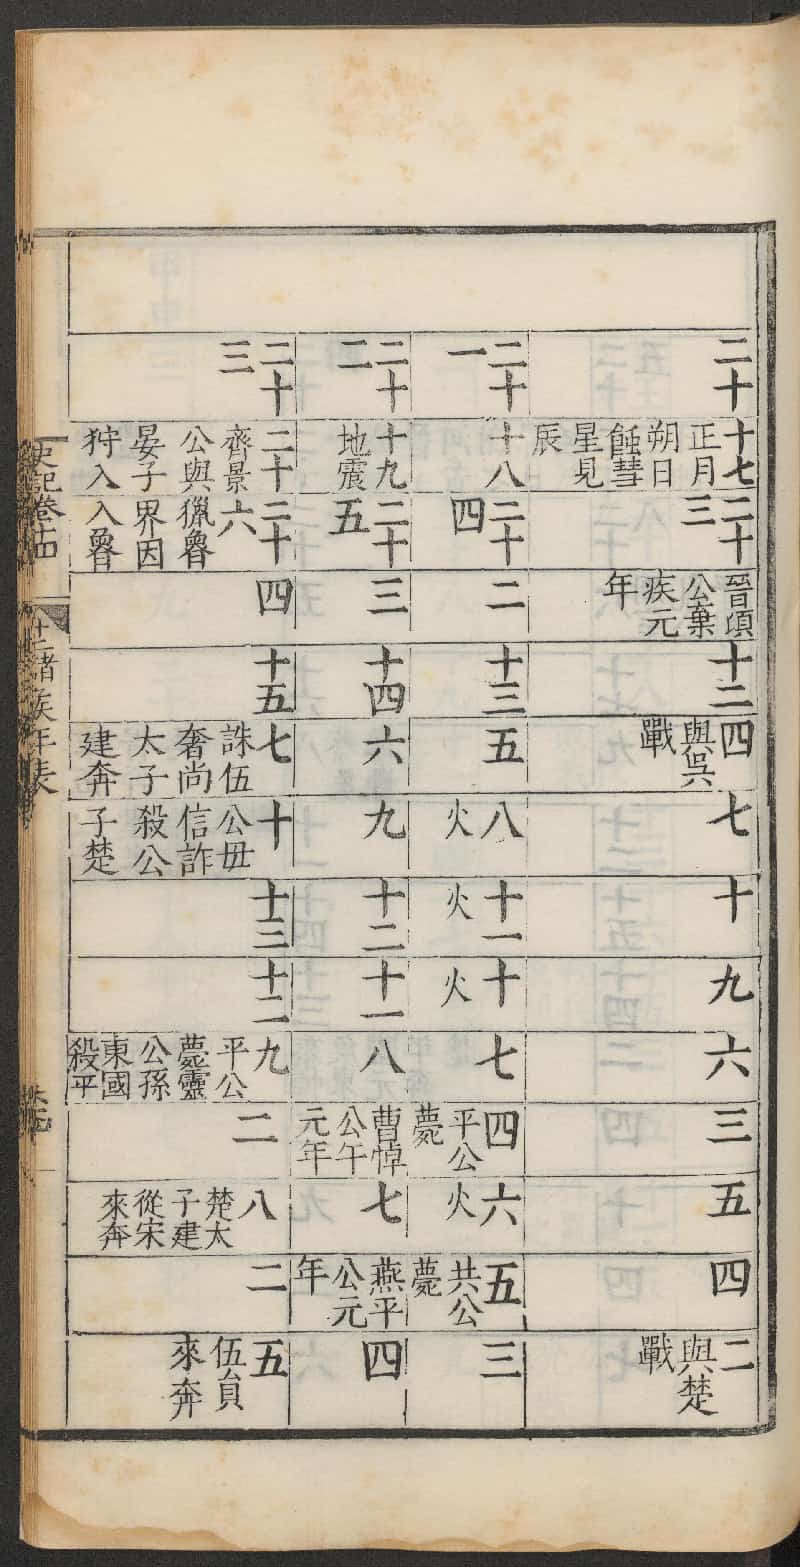 二十
十七
正月
朔日
蝕彗
星見
辰
二十
三
晉頃
公棄
疾元
年
十二
四
與吳
戰
七
十
九
六
三
五
四
二
與楚
戰
二十
一
十八
二十
四
二
十三
五
八
火
十一
火
十
火
七
四
平公
薨
六
火
五
共公
薨
三
二十
二
十九
地震
二十
五
三
十四
六
九
十二
十一
八
曹悼
公午
元年
七
燕平
公元
年
四
二十
三
二十
齊景
公與
晏子
狩入
二十
六
獵魯
界因
入魯
四
十五
七
誅伍
奢尚
太子
建奔
十
公毋
信詐
殺公
子楚
十三
十二
九
平公
薨靈
公孫
東國
殺平
二
八
楚太
子建
從宋
來奔
二
五
伍員
來奔
史記卷十四
十二諸侯年表